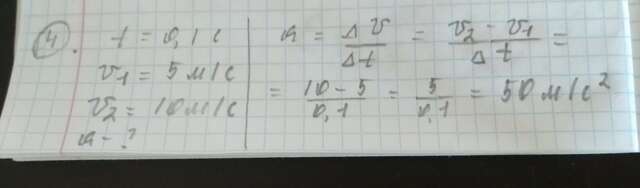 4. t = 0,1 с
v₁ = 5 м/с
v₂ = 10 м/с
a - ?
a = Δv/Δt = (v₂ - v₁)/Δt =
= (10 - 5)/0,1 = 5/0,1 = 50 м/с²